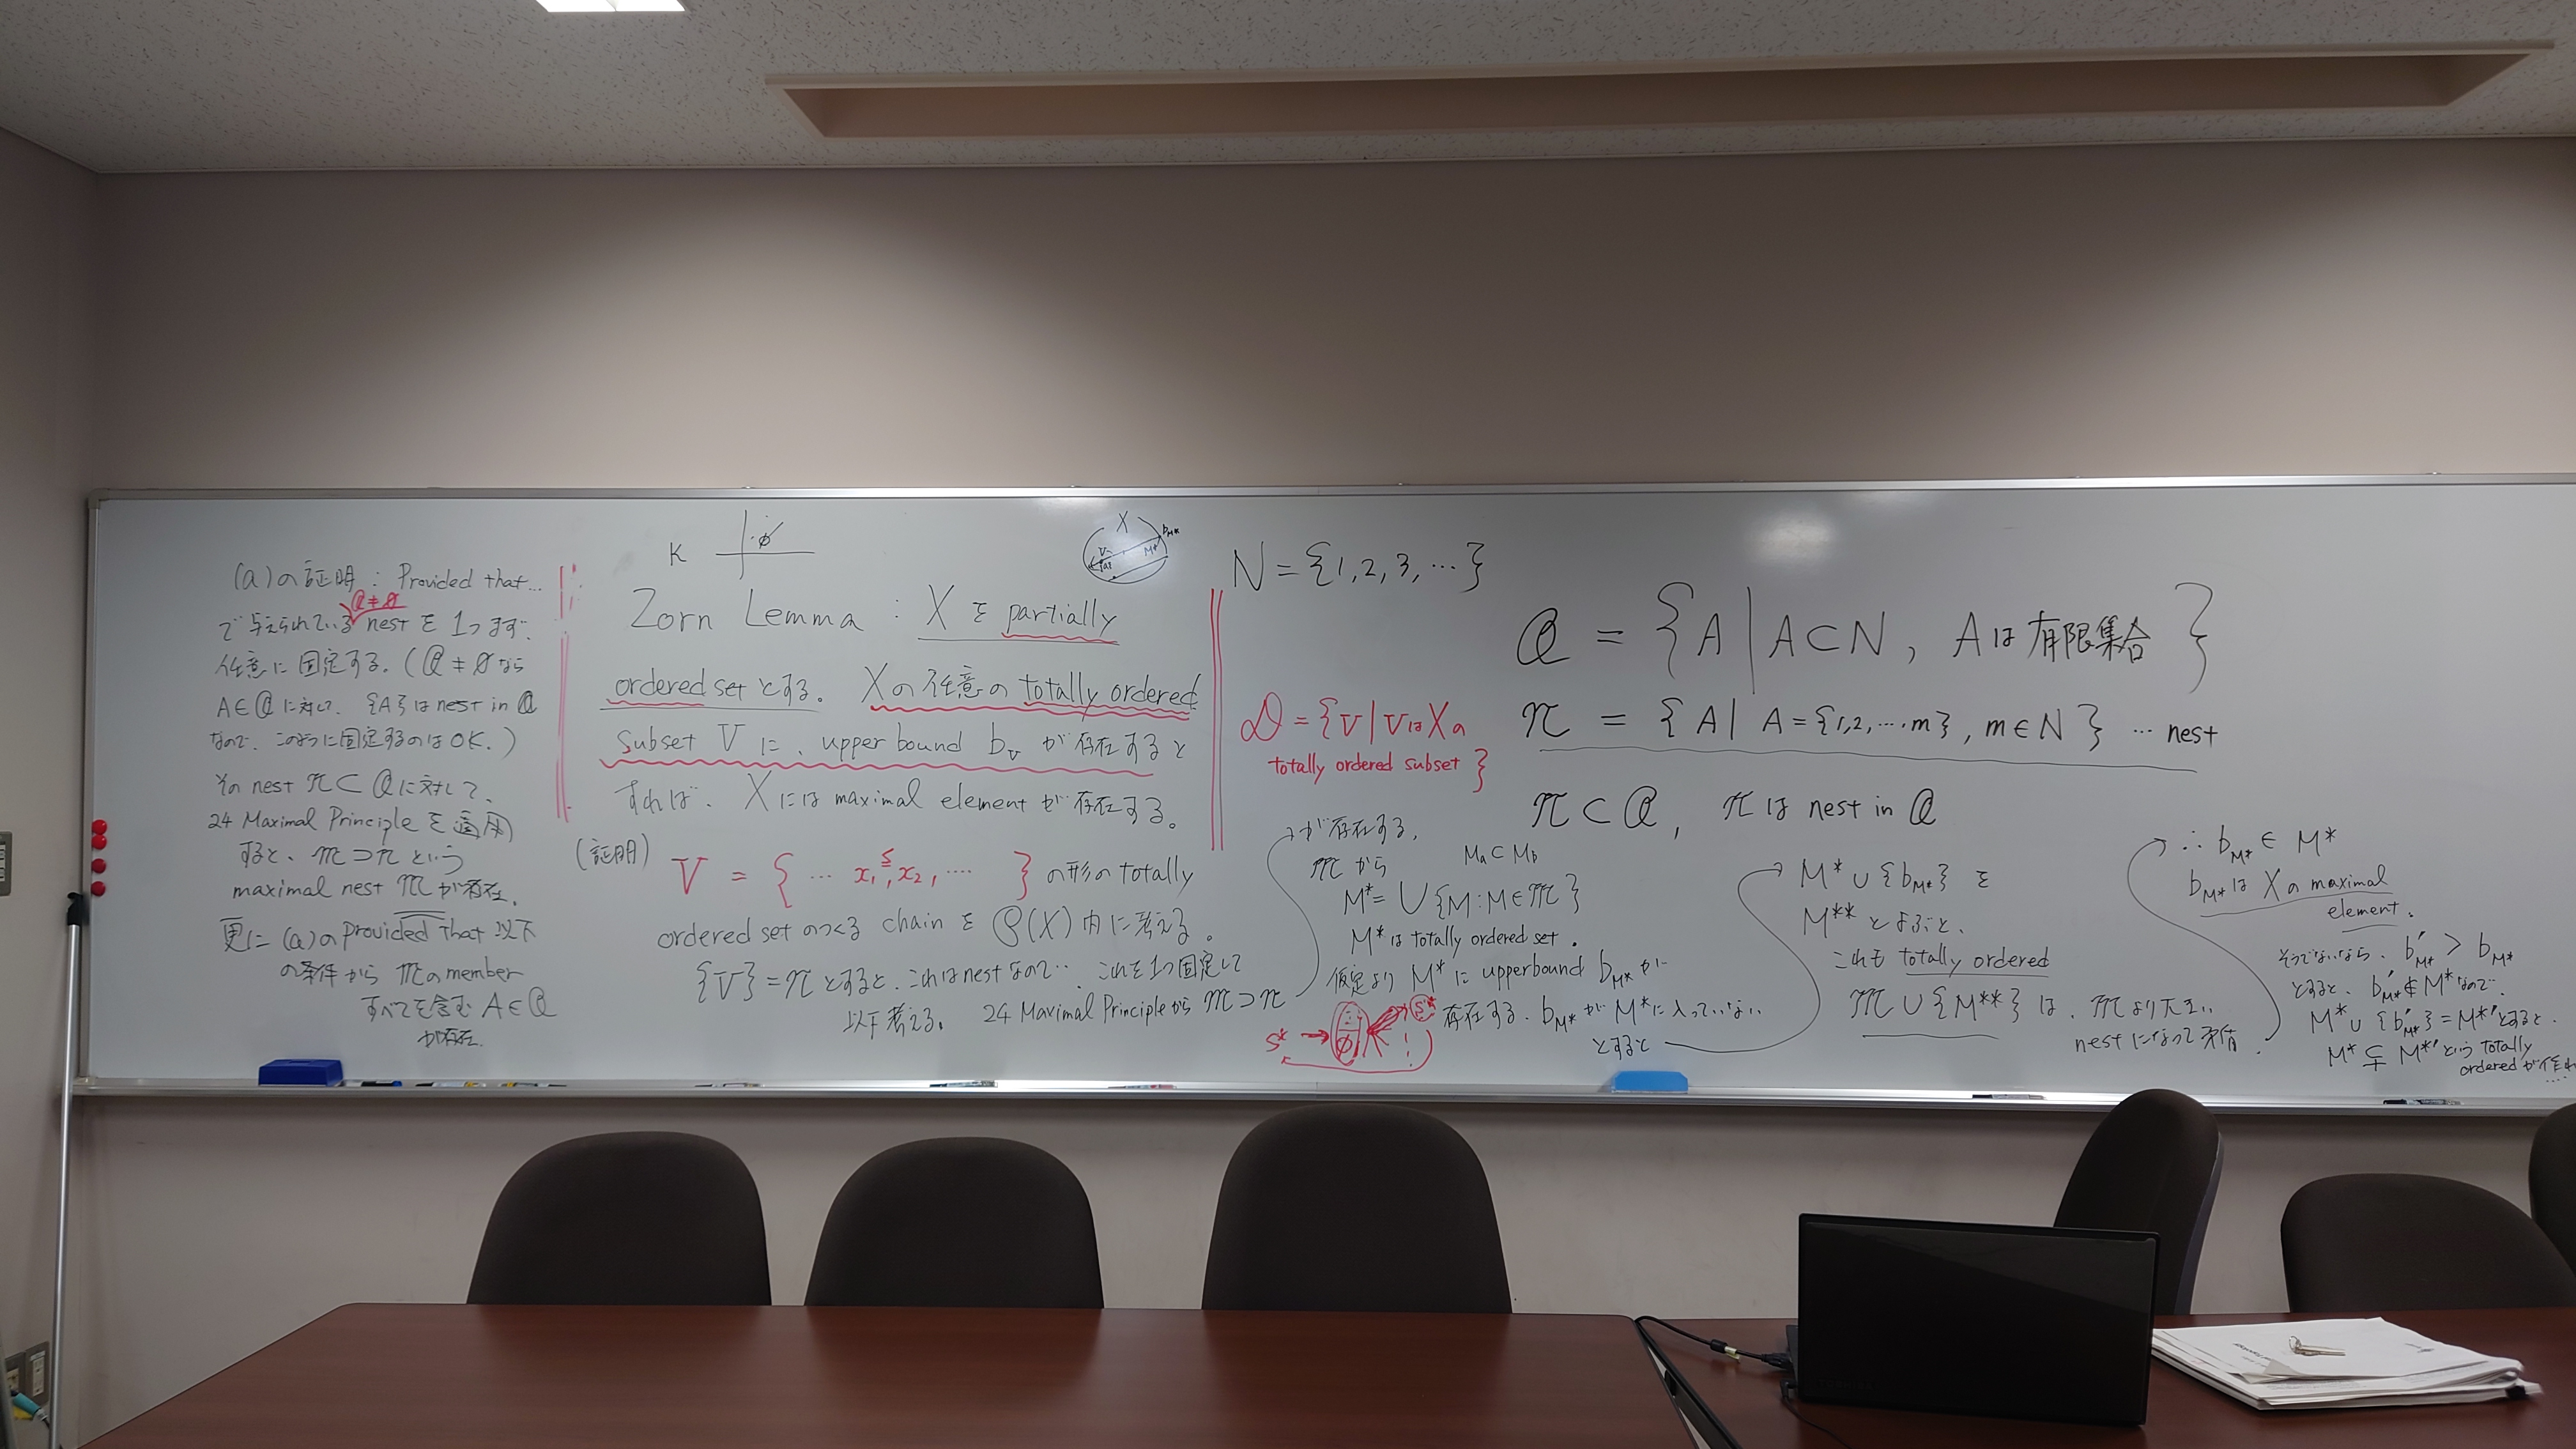 (a)の証明 : Provided that…
𝒬≠∅
で与えられている nest を 1つまず、
任意に固定する。(𝒬≠∅なら
A∈𝒬に対して、{A}は nest in 𝒬
なので、このように固定するのはOK.)
その nest 𝒩⊂𝒬に対して、
24 Maximal Principle を適用
すると、𝓜⊃𝒩という
maximal nest 𝓜が存在.
更に (a)の Provided that 以下
の条件から 𝓜のmember
すべてを含む A∈𝒬
が存在.
K
φ
Zorn Lemma : X を partially
ordered set とする。 Xの任意の totally ordered
subset V に、upper bound b_V が存在すると
すれば、Xには maximal element が存在する。
(証明)
V = { … x₁ ≤ , x₂ , … } の形の totally
ordered set のつくる chain を 𝒫(X) 内に考える。
{V}=𝒩とすると、これはnestなので… これを1つ固定して
以下考える。 24 Maximal Principleから 𝓜⊃𝒩
X
b_M*
V
M*
N={1,2,3,…}
𝒟={V|VはXの
totally ordered subset}
𝒬 = {A|A⊂N, Aは有限集合}
𝒩 = {A| A={1,2,…,m}, m∈N} … nest
𝒩⊂𝒬, 𝒩は nest in 𝒬
が存在する,
𝓜から
Ma⊂Mb
M*=∪{M:M∈𝓜}
M*は totally ordered set.
仮定より M*に upperbound b_M* が
存在する. b_M* が M*に入っていない
とすると
S*
φ
S*
!
M*∪{b_M*} を
M**とよぶと、
これも totally ordered
𝓜∪{M**}は、𝓜より大きい
nestになって矛盾.
∴ b_M* ∈ M*
b_M*は Xの maximal
element.
そうでないなら、b'_M* > b_M*
とすると、b'_M*∉M*なので、
M*∪{b'_M*}=M*'とすると、
M*⊊M*'という totally
ordered が作れ
……